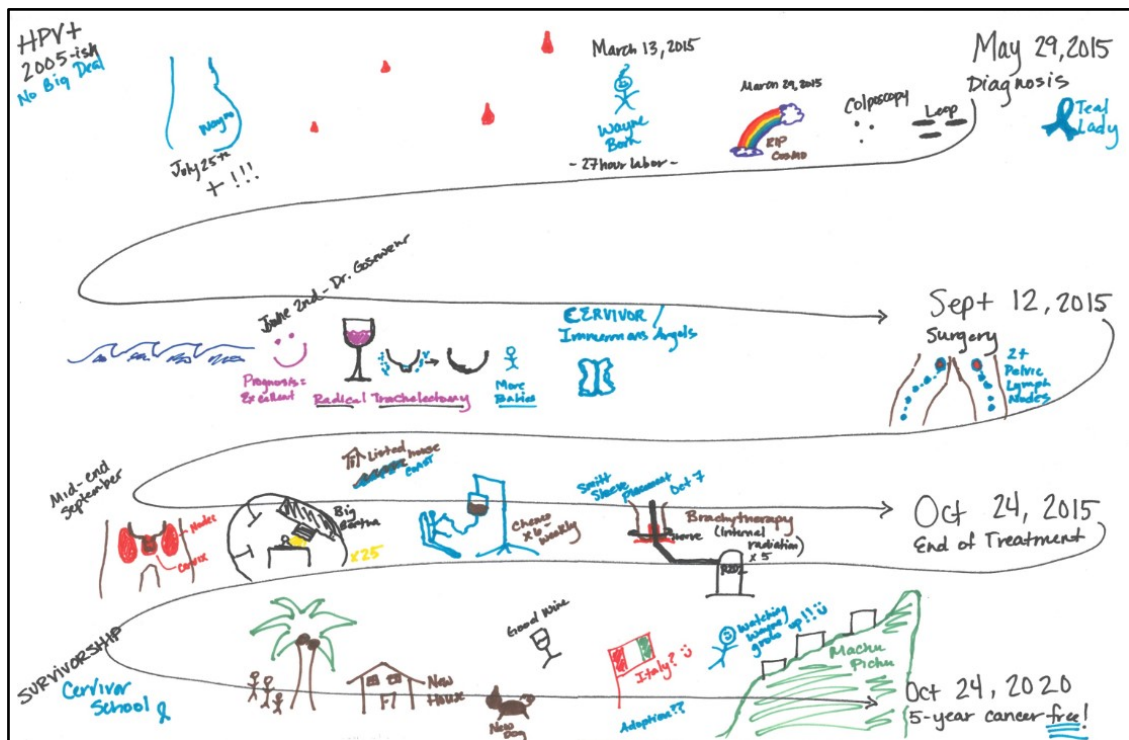 HPV+
2005-ish
No Big Deal
Wayne
July 25th
+ !!!
March 13, 2015
Wayne
Born
- 27 hour labor -
March 29, 2015
RIP
Cosmo
Colposcopy
Leep
May 29, 2015
Diagnosis
Teal
Lady
June 2nd - Dr. Gosewehr
Prognosis =
Excellent
Radical Trachelectomy
More
Babies
CERVIVOR /
Immermans Angels
Sept 12, 2015
Surgery
2+
Pelvic
Lymph
Nodes
Mid-end
September
Nodes
Cervix
Listed house
Big
Bertha
x25
Chemo
x6 -
weekly
Smitt
Sleeve Placement Oct 7
nerve
Brachytherapy
(Internal
radiation)
x 5
R2D2
Oct 24, 2015
End of Treatment
SURVIVORSHIP
Cervivor
School
New
House
Good Wine
New
Dog
Italy?
Adoption??
Watching
Wayne
grow up!!
Machu
Pichu
Oct 24, 2020
5-year cancer free!